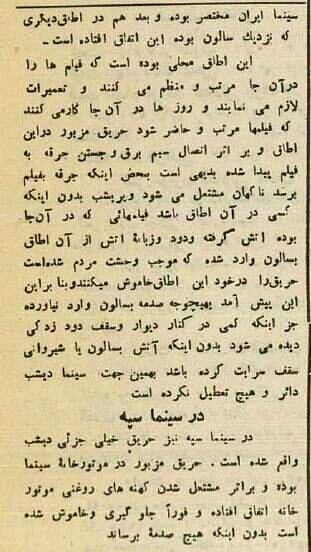 سینما ایران مختصر بوده و بعد هم در اطاق دیگری
که نزدیك سالون بوده این اتفاق افتاده است ـ
این اطاق محلی بوده است که فیلم ها را
در آن جا مرتب و منظم می کنند و تعمیرات
لازم می نمایند و روز ها در آن جا کار می کنند
که فیلمها مرتب و حاضر شود حریق مزبور در این
اطاق و بر اثر اتصال سیم برق و جستن جرقه به
فیلم پیدا شده بدیهی است بمحض اینکه جرقه بفیلم
برسد ناگهان مشتعل می شود و پریشب بدون اینکه
کسی در آن اطاق باشد فیلمهائی که در آن جا
بوده آتش گرفته و دود و زبانهٔ آتش از آن اطاق
بسالون وارد شده که موجب وحشت مردم شده است
حریق را در خود این اطاق خاموش میکنند و بنا بر این
این پیش آمد بهیچوجه صدمه بسالون وارد نیاورده
جز اینکه کمی در کنار دیوار و سقف دود زدگی
دیده می شود بدون اینکه آتش بسالون یا شیروانی
سقف سرایت کرده باشد بهمین جهت سینما دیشب
دائر و هیچ تعطیل نکرده است
در سینما سپه
در سینما سپه نیز حریق خیلی جزئی دیشب
واقع شده است . حریق مزبور در موتورخانهٔ سینما
بوده و براثر مشتعل شدن کهنه های روغنی موتور
خانه اتفاق افتاده و فوراً جلو گیری و خاموش شده
است بدون اینکه هیچ صدمهٔ برساند